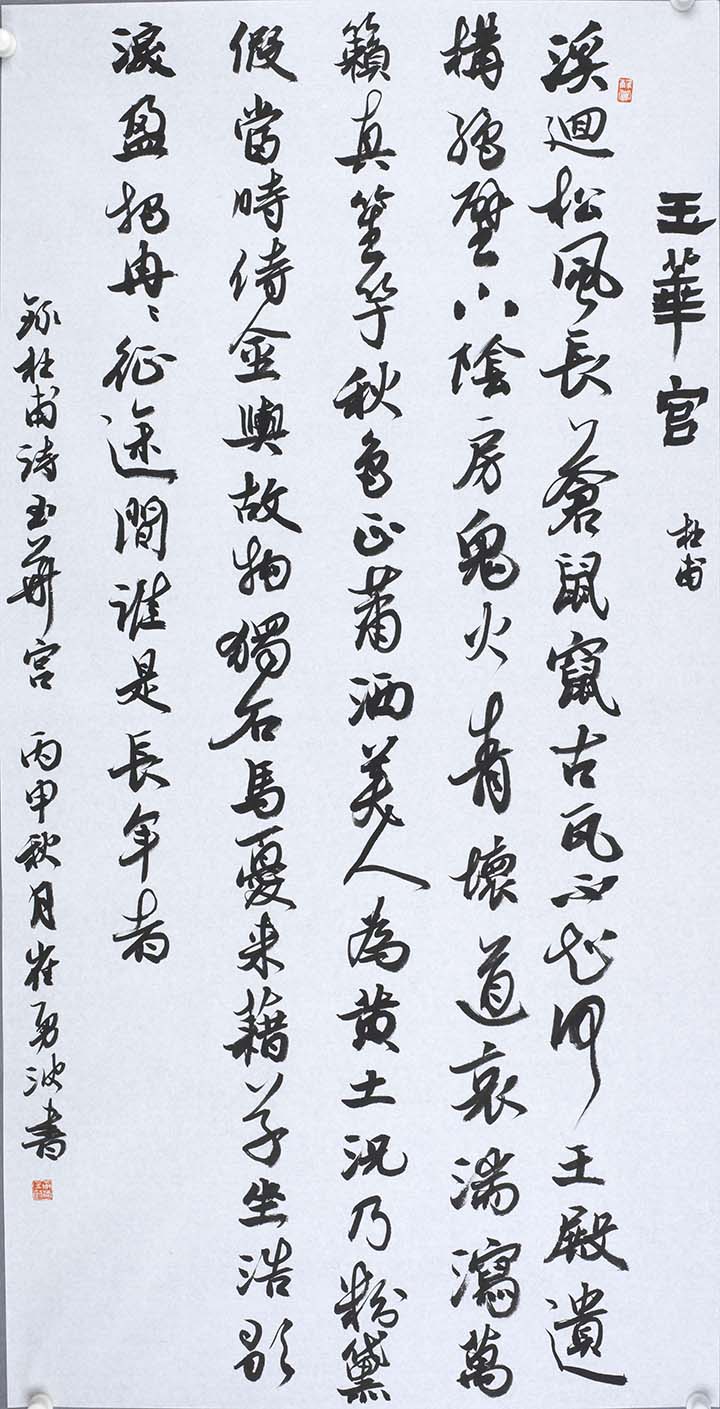 玉華宮 杜甫
溪迴松風長蒼鼠竄古瓦不知何王殿遺
構絕壁下陰房鬼火青壞道哀湍瀉萬
籟真笙竽秋色正蕭洒美人為黄土況乃粉黛
假當時侍金輿故物獨石馬憂来藉草坐浩歌
淚盈把冉〻征途間誰是長年者
錄杜甫詩玉華宮 丙申秋月崔勇波書